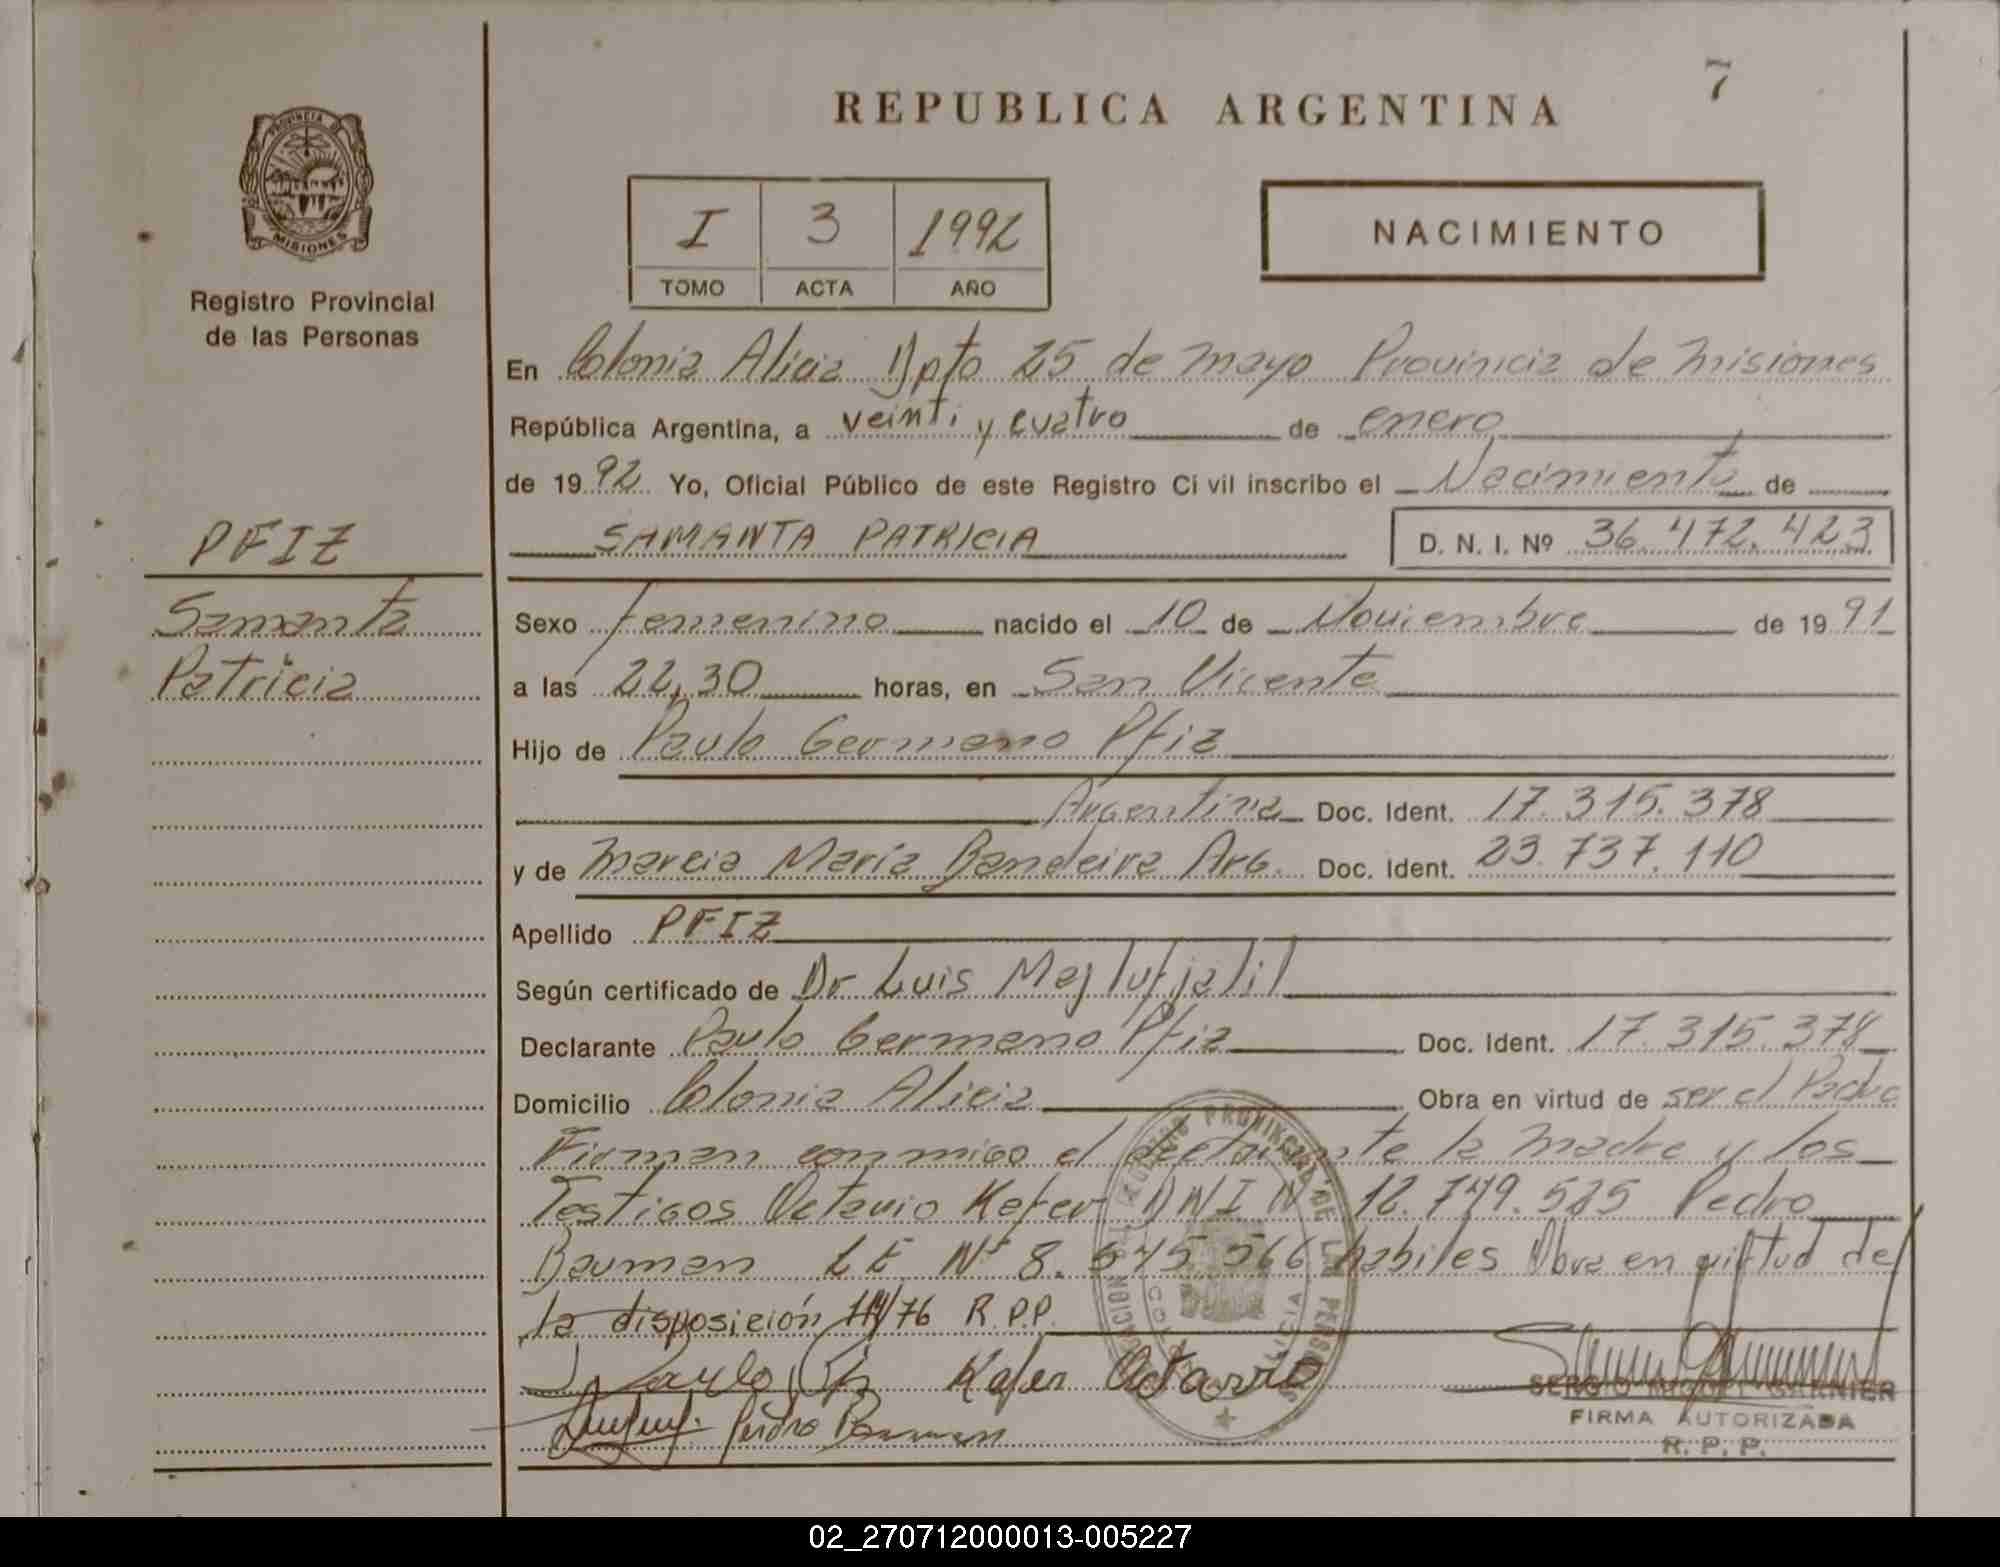 7
REPUBLICA ARGENTINA
PROVINCIA DE
MISIONES
Registro Provincial
de las Personas
I 3 1992
TOMO ACTA AÑO
NACIMIENTO
En Colonia Alicia Dpto 25 de Mayo Provincia de Misiones
República Argentina, a veinti y cuatro de enero
de 1992 Yo, Oficial Público de este Registro Civil inscribo el Nacimiento de
SAMANTA PATRICIA D. N. I. Nº 36.472.423
PFIZ
Samanta
Patricia
Sexo femenino nacido el 10 de Noviembre de 1991
a las 22,30 horas, en San Vicente
Hijo de Paulo Germano Pfiz
Argentina Doc. Ident. 17.315.378
y de Marcia María Bandeira Arg. Doc. Ident. 23.737.110
Apellido PFIZ
Según certificado de Dr Luis
Declarante Paulo Germano Pfiz Doc. Ident. 17.315.378
Domicilio Colonia Alicia Obra en virtud de ser el Padre
Firman conmigo el declarante la madre y los
Testigos Octavio Kefer DNI Nº 12.749.525 Pedro
Bauman LE Nº 8.545.566 habiles Obra en virtud de
la disposición /76 R.P.P.
Paulo Pfiz Kefer Otavio
Pedro Bauman
SERGIO GARNIER
FIRMA AUTORIZADA
R. P. P.
02_270712000013-005227